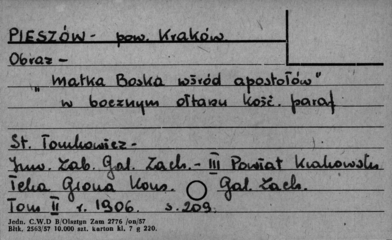 PIESZÓW - pow. Kraków
Obraz -
„Matka Boska wśród apostołów"
w bocznym ołtarzu Kość. paraf
St. Tomkowicz -
Inw. Zab. Gal. Zach. - III Powiat Krakowski
Teka Grona Kons. Gal. Zach.
Tom II r. 1906. s. 209.
Jedn. C.W.D B/Olsztyn Zam 2776 /on/57
Bltk. 2563/57 10.000 szt. karton kl. 7 g 220.